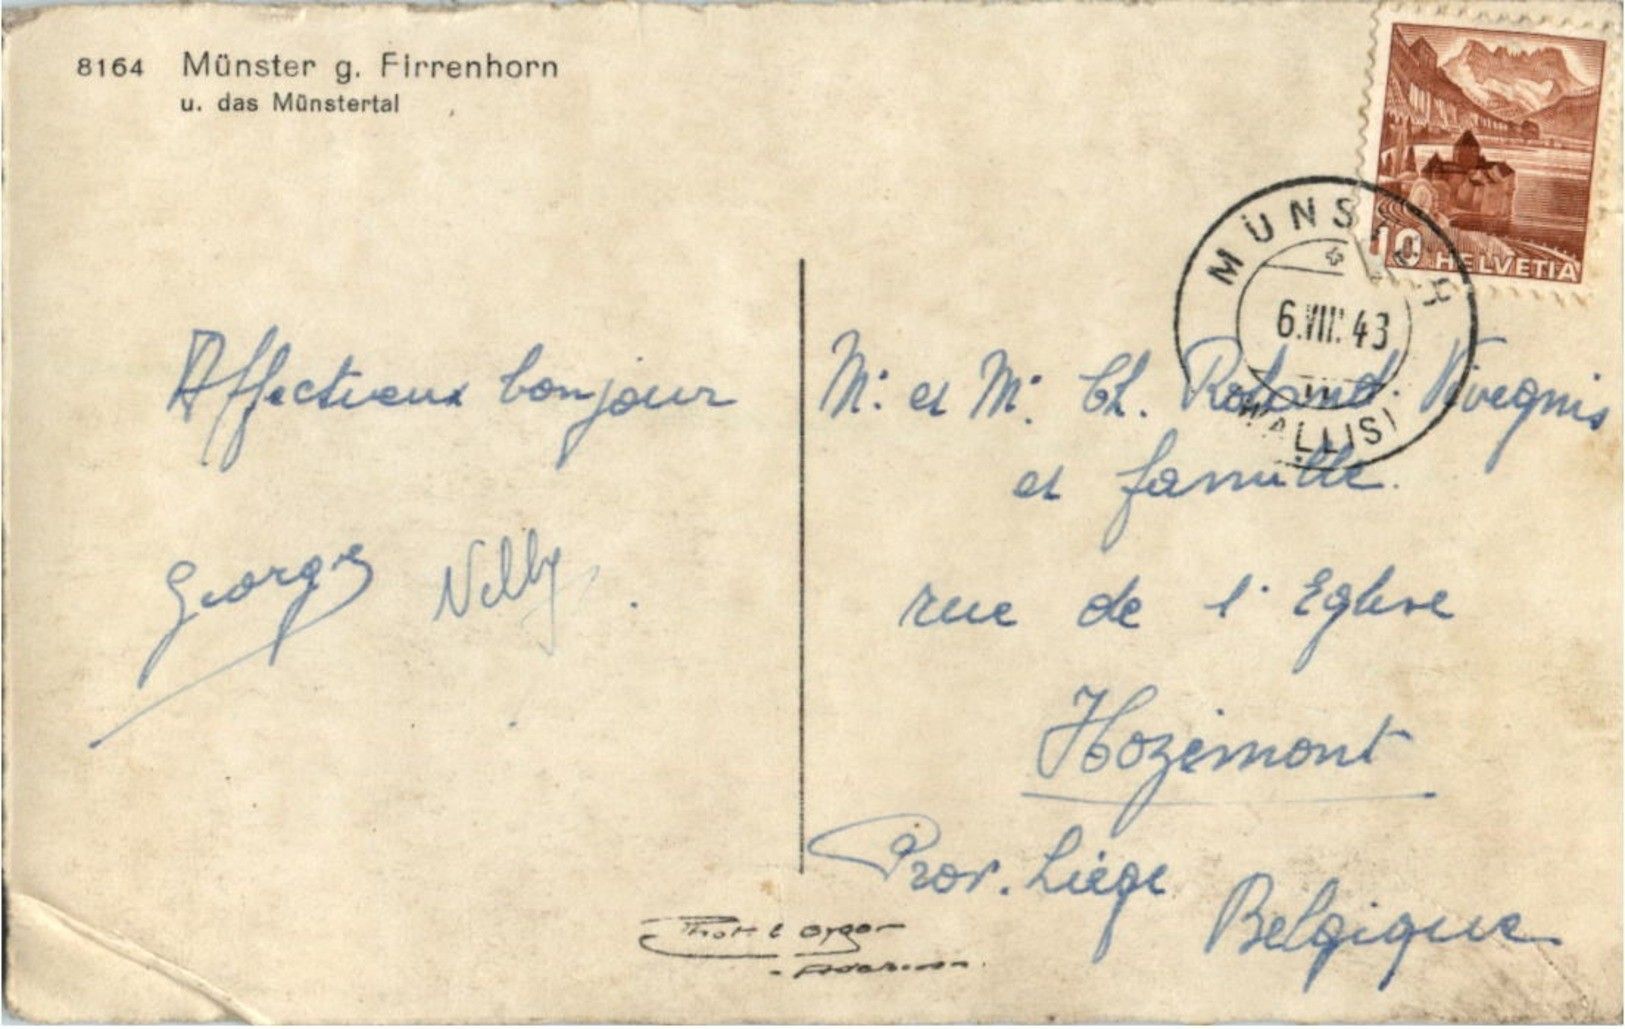 8164 Münster g. Firrenhorn
u. das Münstertal
10 HELVETIA
MÜNS
6.VIII.43
(WALLIS)
Affectueux bonjour
Georges Nelly.
Mr. et Me. Ch. Roland. Vivegnis
et famille.
rue de l'Eglise
Hozémont
Prov. Liège
Belgique